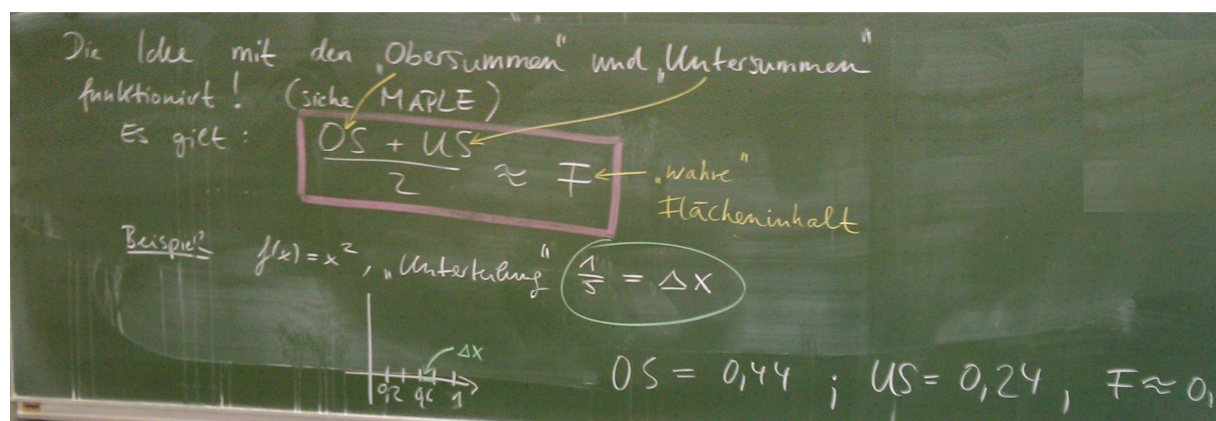 Die Idee mit den „Obersummen“ und „Untersummen“
funktioniert! (siehe MAPLE)
Es gilt:
OS + US
2
≈ F
„wahre“
Flächeninhalt
Beispiel: f(x) = x², „Unterteilung“ 1/5 = Δx
Δx
0,2 0,6 1
OS = 0,44 ; US = 0,24 , F ≈ 0,